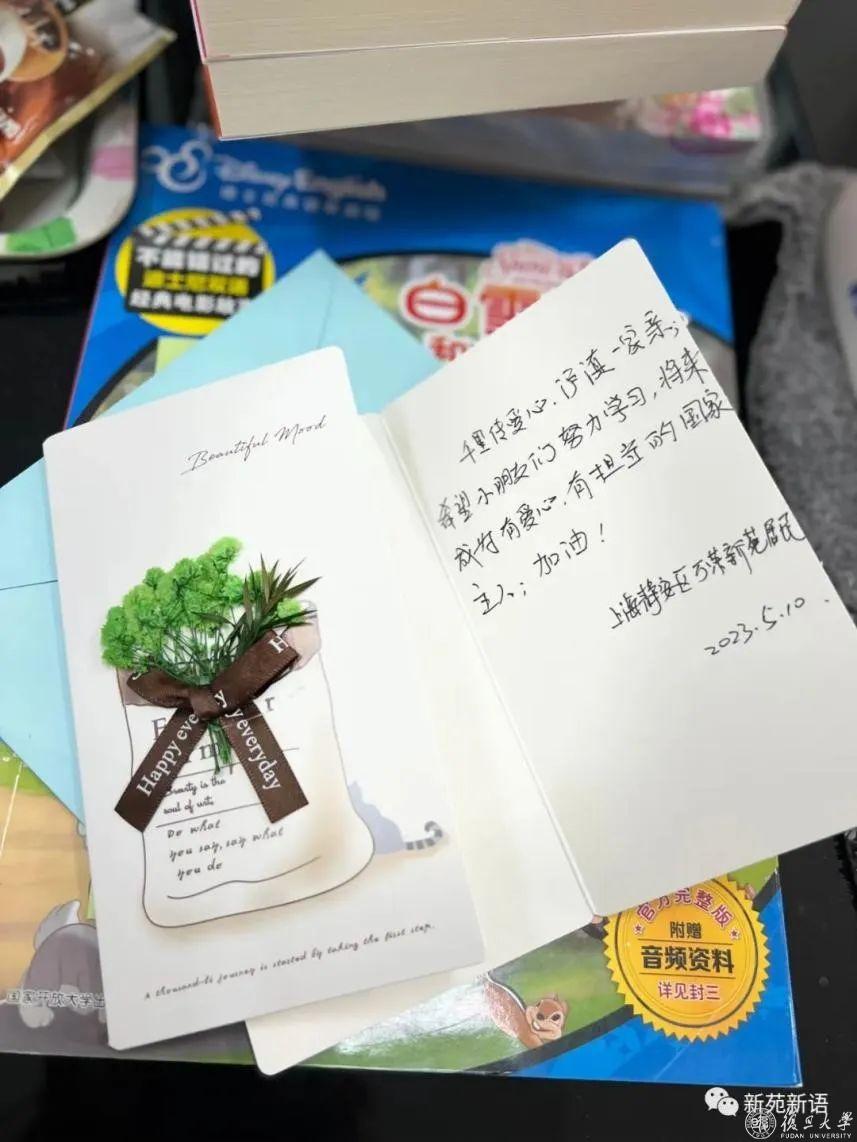 Disney English
不能错过的
迪士尼双语
经典电影故事
白雪
和
Beautiful Mood
千里传爱心,沪滇一家亲;
希望小朋友们努力学习,将来
成为有爱心、有担当的国家
主人;加油!
上海静安区万荣新苑居民
2023.5.10.
Happy everyday
Happy everyday
Brevity is the
soul of wit.
Do what
you say, say what
you do
A thousand-li journey is started by taking the first step.
官方完整版
附赠
音频资料
详见封三
国家开放大学出
新苑新语
復旦大學
FUDAN UNIVERSITY